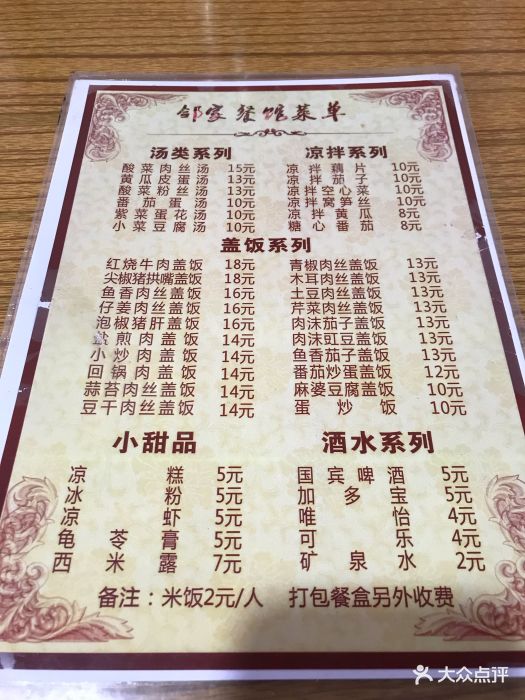 邻家餐馆菜单
汤类系列
酸菜肉丝汤 15元
黄瓜皮蛋汤 13元
酸菜粉丝汤 13元
番茄蛋汤 10元
紫菜蛋花汤 10元
小菜豆腐汤 10元
凉拌系列
凉拌藕片 10元
凉拌茄子 10元
凉拌空心菜 10元
凉拌窝笋丝 10元
凉拌黄瓜 8元
糖心番茄 8元
盖饭系列
红烧牛肉盖饭 18元
尖椒猪拱嘴盖饭 18元
鱼香肉丝盖饭 16元
仔姜肉丝盖饭 16元
泡椒猪肝盖饭 16元
盐煎肉盖饭 14元
小炒肉盖饭 14元
回锅肉盖饭 14元
蒜苔肉丝盖饭 14元
豆干肉丝盖饭 14元
青椒肉丝盖饭 13元
木耳肉丝盖饭 13元
土豆肉丝盖饭 13元
芹菜肉丝盖饭 13元
肉沫茄子盖饭 13元
肉沫豇豆盖饭 13元
鱼香茄子盖饭 13元
番茄炒蛋盖饭 12元
麻婆豆腐盖饭 10元
蛋炒饭 10元
小甜品
凉糕 5元
冰粉 5元
凉虾 5元
龟苓膏 5元
西米露 7元
酒水系列
国宾啤酒 5元
加多宝 5元
唯怡 4元
可乐 4元
矿泉水 2元
备注：米饭2元/人 打包餐盒另外收费
大众点评